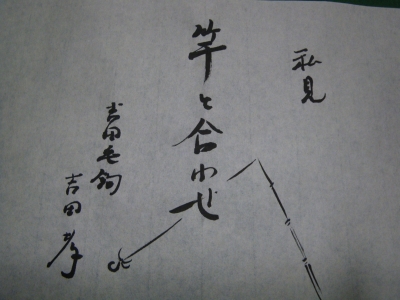 私見
竿と合わせ
吉田毛鉤
吉田孝